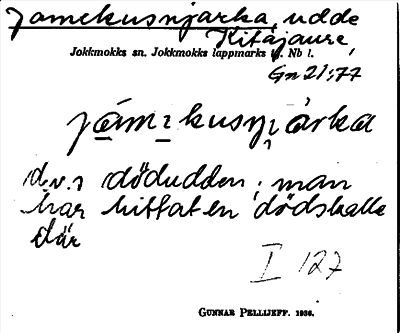 Jamekusnjarka, udde
Kitajaure,
Jokkmokks sn. Jokkmokks lappmarks tg. Nb l.
Gn 21:77
jámɪkusnjárka
d.v.s dödudden; man
har hittat en dödskalle
där
I 127
GUNNAR PELLIJEFF. 1936.